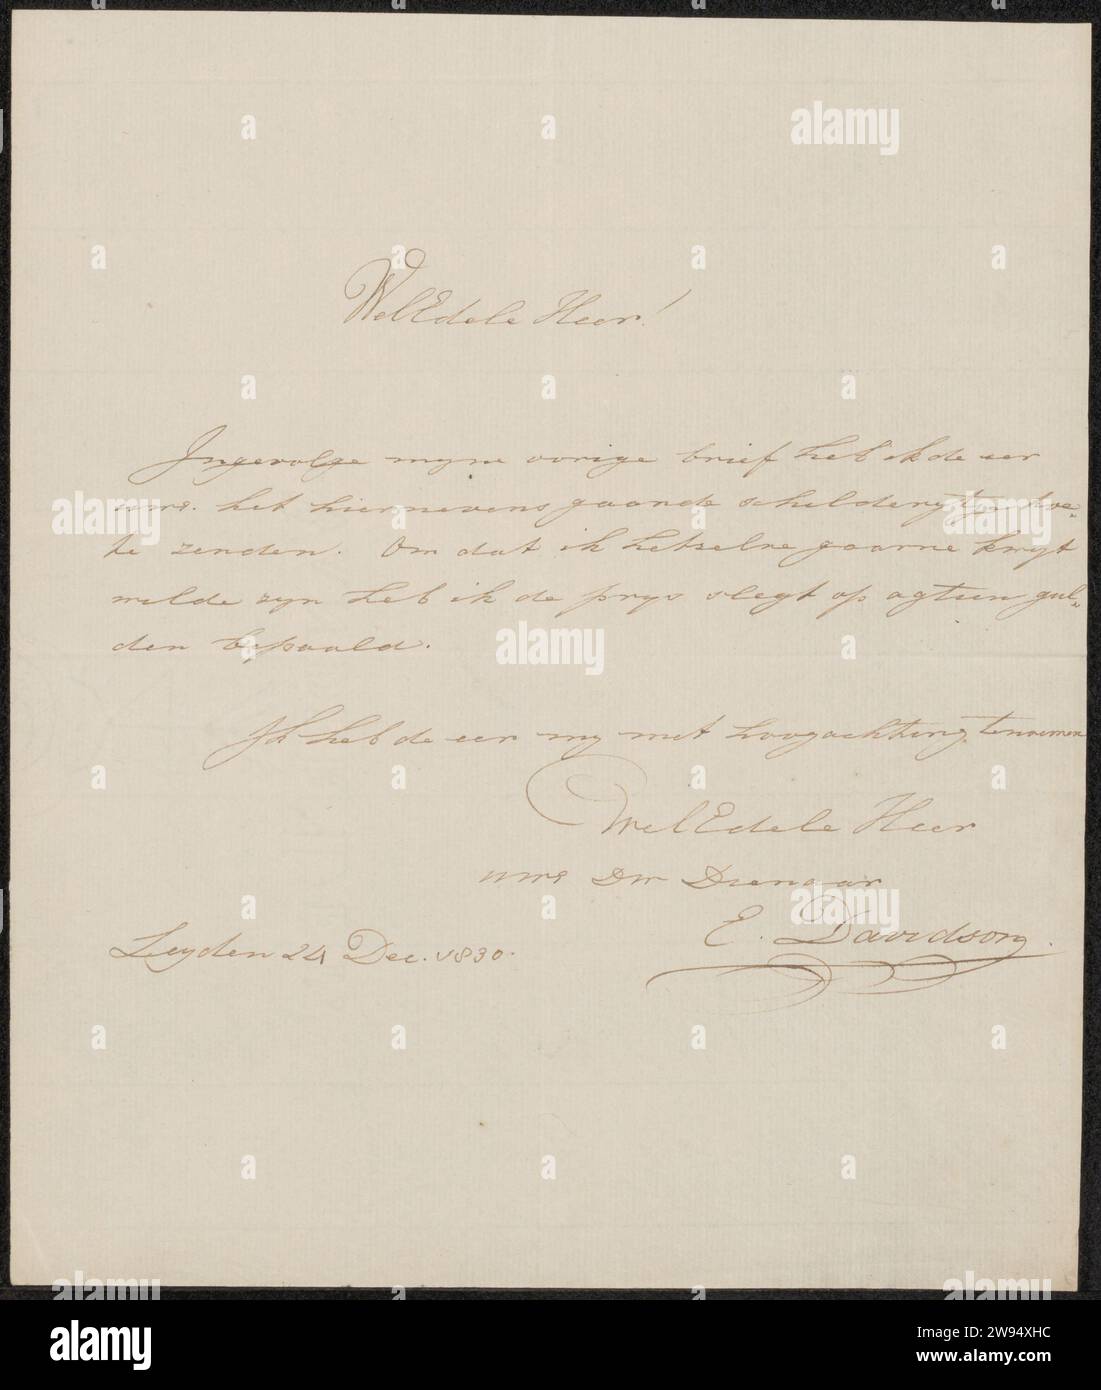 WelEdele Heer!
Ingevolge myne vorige brief heb ik de eer
uwe. het hiernevens gaande schilderytjn toe-
te zenden. Om dat ik hetzelve gaarne kwyt
wilde zyn heb ik de prys slegt op agtien gul-
den bepaald.
Ik heb de eer my met hoogachting te noemen
WelEdele Heer
uwe Dw Dienaar
E. Davidson
Leyden 24 Dec. 1830.
alamy
Image ID: 2W94XHC
www.alamy.com